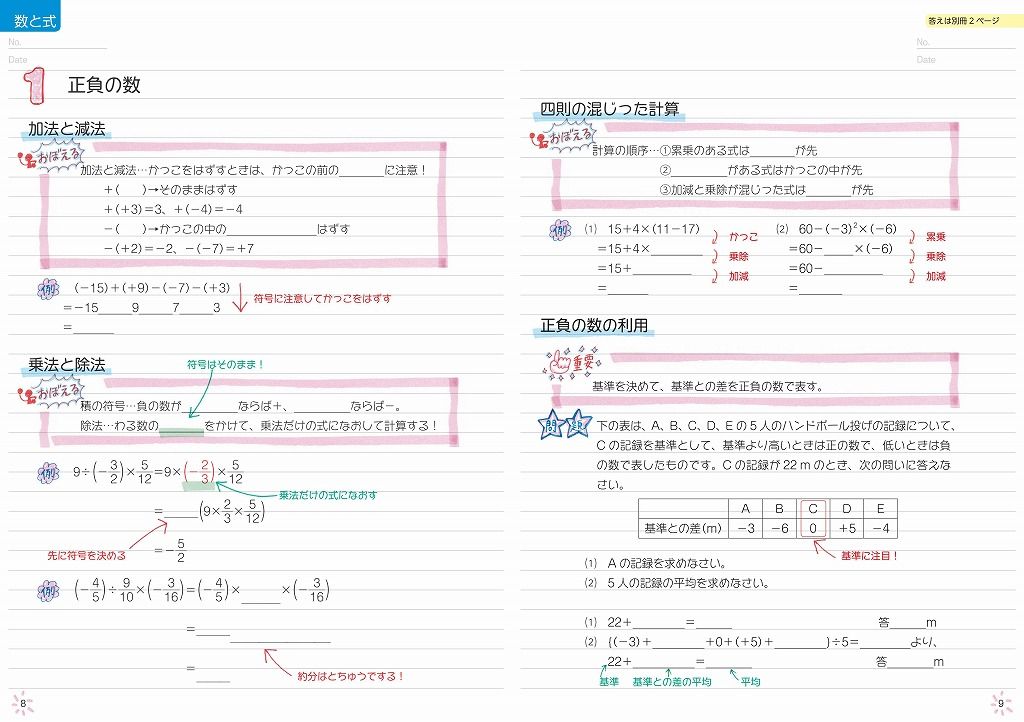 数と式
答えは別冊2ページ
No.
Date
No.
Date
1 正負の数
加法と減法
おぼえる
加法と減法…かっこをはずすときは、かっこの前の______に注意！
＋(　　)→そのままはずす
＋(＋3)＝3、＋(−4)＝−4
−(　　)→かっこの中の____________はずす
−(＋2)＝−2、−(−7)＝＋7
例 (−15)＋(＋9)−(−7)−(＋3)
符号に注意してかっこをはずす
＝−15____9____7____3
＝_____
乗法と除法
符号はそのまま！
おぼえる
積の符号…負の数が______ならば＋、______ならば−。
除法…わる数の______をかけて、乗法だけの式になおして計算する！
例 9÷(−3/2)×5/12＝9×(−2/3)×5/12
乗法だけの式になおす
＝____(9×2/3×5/12)
先に符号を決める
＝−5/2
例 (−4/5)÷9/10×(−3/16)＝(−4/5)×_____×(−3/16)
＝____ ____________
約分はとちゅうでする！
＝____
8
四則の混じった計算
おぼえる
計算の順序…①累乗のある式は______が先
②________がある式はかっこの中が先
③加減と乗除が混じった式は______が先
例 (1) 15＋4×(11−17)
かっこ
＝15＋4×_______
乗除
＝15＋________
加減
＝_____
(2) 60−(−3)²×(−6)
累乗
＝60−____×(−6)
乗除
＝60−________
加減
＝_____
正負の数の利用
重要
基準を決めて、基準との差を正負の数で表す。
問題 下の表は、A、B、C、D、Eの5人のハンドボール投げの記録について、
Cの記録を基準として、基準より高いときは正の数で、低いときは負
の数で表したものです。Cの記録が22mのとき、次の問いに答えな
さい。
A B C D E
基準との差(m) −3 −6 0 ＋5 −4
基準に注目！
(1) Aの記録を求めなさい。
(2) 5人の記録の平均を求めなさい。
(1) 22＋_______＝_____ 答_____m
(2) {(−3)＋_______＋0＋(＋5)＋_______}÷5＝_______より、
22＋________＝________ 答______m
基準 基準との差の平均 平均
9